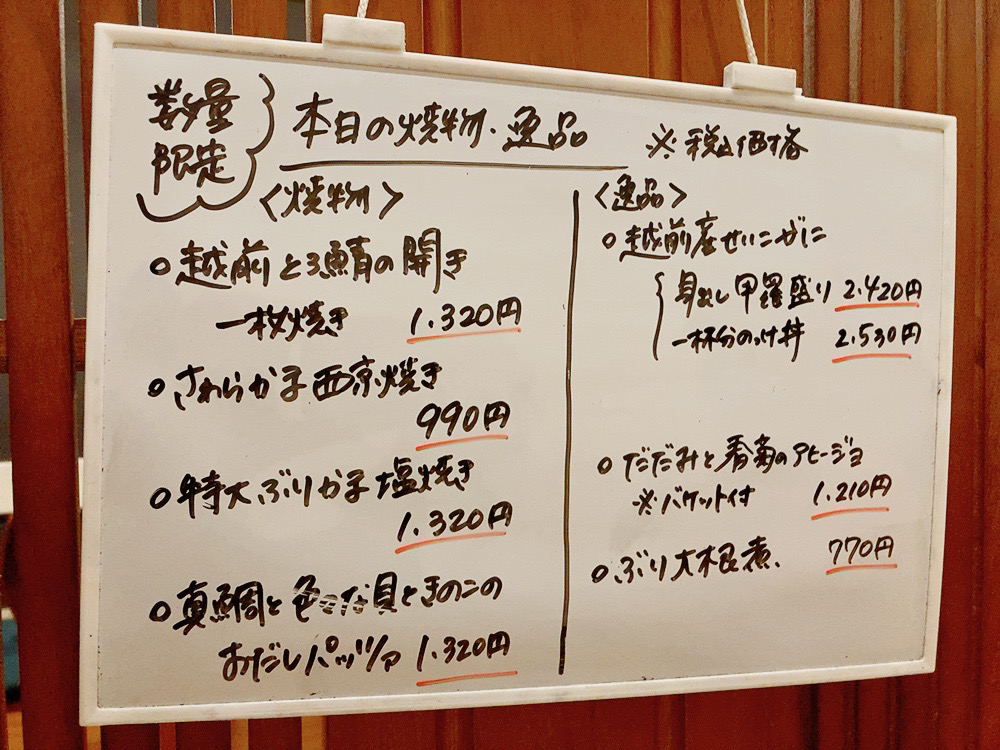 数量
限定
本日の焼物・逸品
※税込価格
〈焼物〉
○越前とろ鯖の開き
一枚焼き 1.320円
○さわらかま西京焼き
990円
○特大ぶりかま塩焼き
1.320円
○真鯛と色々な貝ときのこの
おだしパッツァ 1.320円
〈逸品〉
○越前産せいこがに
身出し甲羅盛り 2.420円
一杯分のっけ丼 2.530円
○だだみと春菊のアヒージョ
※バケット付 1.210円
○ぶり大根煮 770円